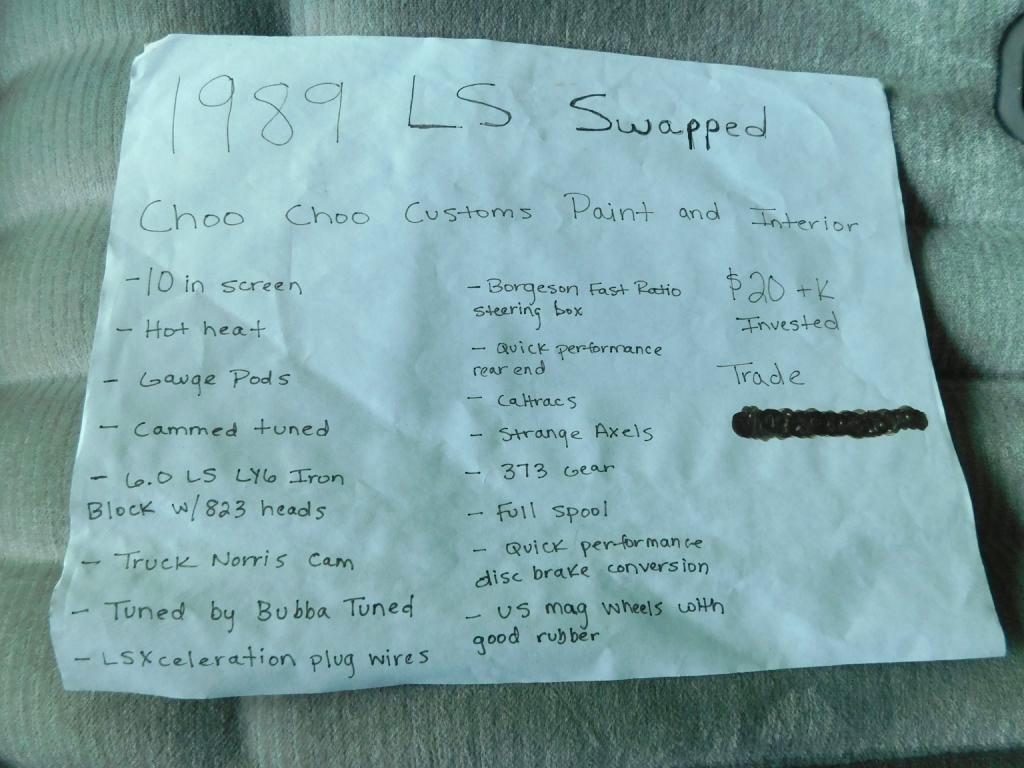 1989 LS Swapped
Choo Choo Customs Paint and Interior
- 10 in screen
- Hot heat
- Gauge Pods
- Cammed tuned
- 6.0 LS LY6 Iron
Block w/823 heads
- Truck Norris Cam
- Tuned by Bubba Tuned
- LSXceleration plug wires
- Borgeson Fast Ratio
steering box
- Quick performance
rear end
- Caltracs
- Strange Axels
- 373 Gear
- Full Spool
- Quick performance
disc brake conversion
- US mag wheels with
good rubber
$20+K
Invested
Trade